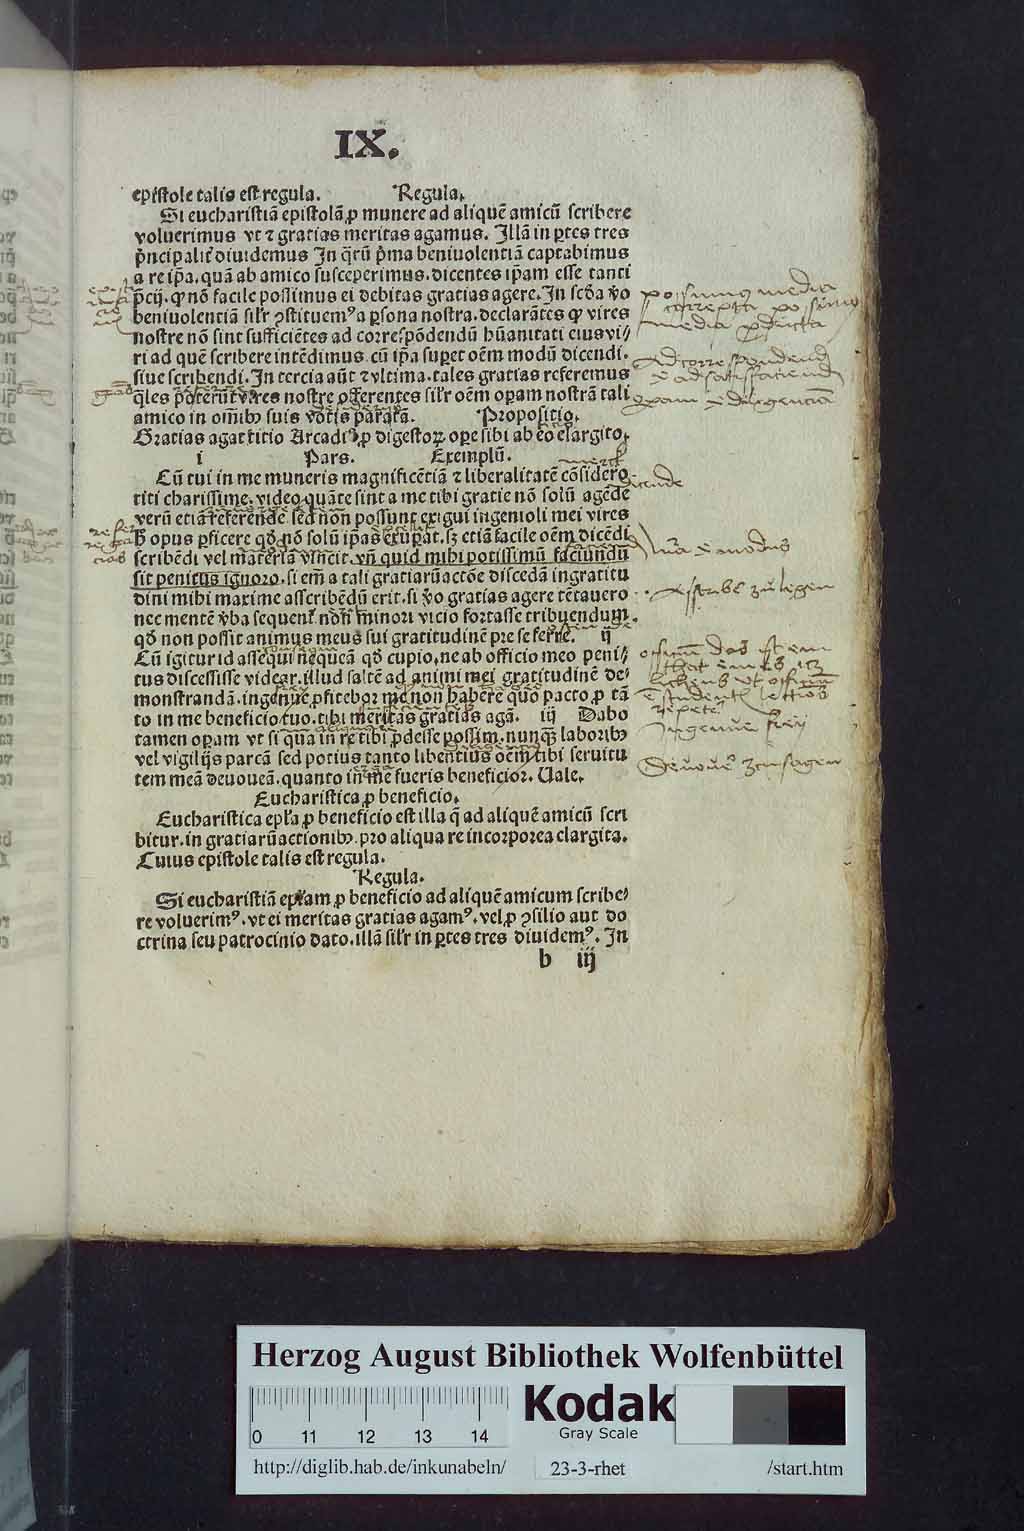 IX.
epistole talis est regula. Regula.
Si eucharistiā epistolā ꝓ munere ad aliquē amicū scribere
voluerimus vt ⁊ gratias meritas agamus. Illā in ꝑtes tres
pͥncipalit᷑ diuidemus In q̄rū pͥma beniuolentiā captabimus
a re ip̄a. quā ab amico susceperimus. dicentes ip̄am esse tanti
p̄cij. ꝙ nō facile possimus ei debitas gratias agere. In scd̄a v̊o
beniuolentiā sil'r ꝯstituemꝰ a ꝑsona nostra. declarātes ꝙ vires
nostre nō sint sufficiētes ad correspōdendū hūanitati eius vi⸗
ri ad quē scribere intēdimus. cū ip̄a suꝑet oēm modū dicendi.
siue scribendi. In tercia aūt ⁊ vltima. tales gratias referemus
q̄les poterūt vires nostre ꝓferentes sil'r oēm oꝑam nostrā tali
amico in om̄ibꝫ suis votis paratā. Propositio.
Gratias agat titio Arcadiꝰ ꝓ digestoꝝ oꝑe sibi ab eo elargito.
i Pars. Exemplū.
Cū tui in me muneris magnificētiā ⁊ liberalitatē cōsidero
titi charissime. video quāte sint a me tibi gratie nō solū agēde
verū etiā referende sed non possunt exigui ingenioli mei vires
h̄ opus ꝑficere qd̄ nō solū ip̄as exuꝑat. sꝫ etiā facile oēm dicēdi
scribēdi vel materiā vincit. vn̄ quid mihi potissimū faciundū
sit penitus ignoro. si em̄ a tali gratiarū actōe discedā ingratitu
dini mihi maxime asscribēdū erit. si v̊o gratias agere tētauero
nec mentē v̊ba sequent᷑ nō minori vicio fortasse tribuendum.
qd̄ non possit animus meus sui gratitudinē pre se ferre. ij
Cū igitur id assequi nequeā qd̄ cupio. ne ab officio meo peni⸗
tus discessisse videar. illud saltē ad animi mei gratitudinē de⸗
monstrandā. ingenue ꝓfiteboꝛ me non habere quo pacto ꝓ tā
to in me beneficio tuo. tibi meritas gratias agā. iij Dabo
tamen oꝑam vt si quā in re tibi ꝓdesse possim. nunqꝫ laboribꝫ
vel vigilijs parcā sed potius tanto libentius oēm tibi seruitu
tem meā deuoueā. quanto in me fueris beneficior. Uale.
Eucharistica ꝓ beneficio.
Eucharistica ep̄la ꝓ beneficio est illa q̄ ad aliquē amicū scri
bitur. in gratiarū actionibꝫ. pro aliqua re incorporea elargita.
Cuius epistole talis est regula.
Regula.
Si eucharistiā ep̄lam ꝓ beneficio ad aliquē amicum scribe⸗
re voluerimꝰ. vt ei meritas gratias agamꝰ. vel ꝓ ꝯsilio aut do
ctrina seu patrocinio dato. illā sil'r in ꝑtes tres diuidemꝰ. In
b iij
possumus media
correpta possimus
media ꝓducta
Ad correspondendū
Asscribē zulegen
Ingenue frey
Deuoueo zusagen
Herzog August Bibliothek Wolfenbüttel
Kodak
Gray Scale
0 11 12 13 14
http://diglib.hab.de/inkunabeln/ 23-3-rhet /start.htm